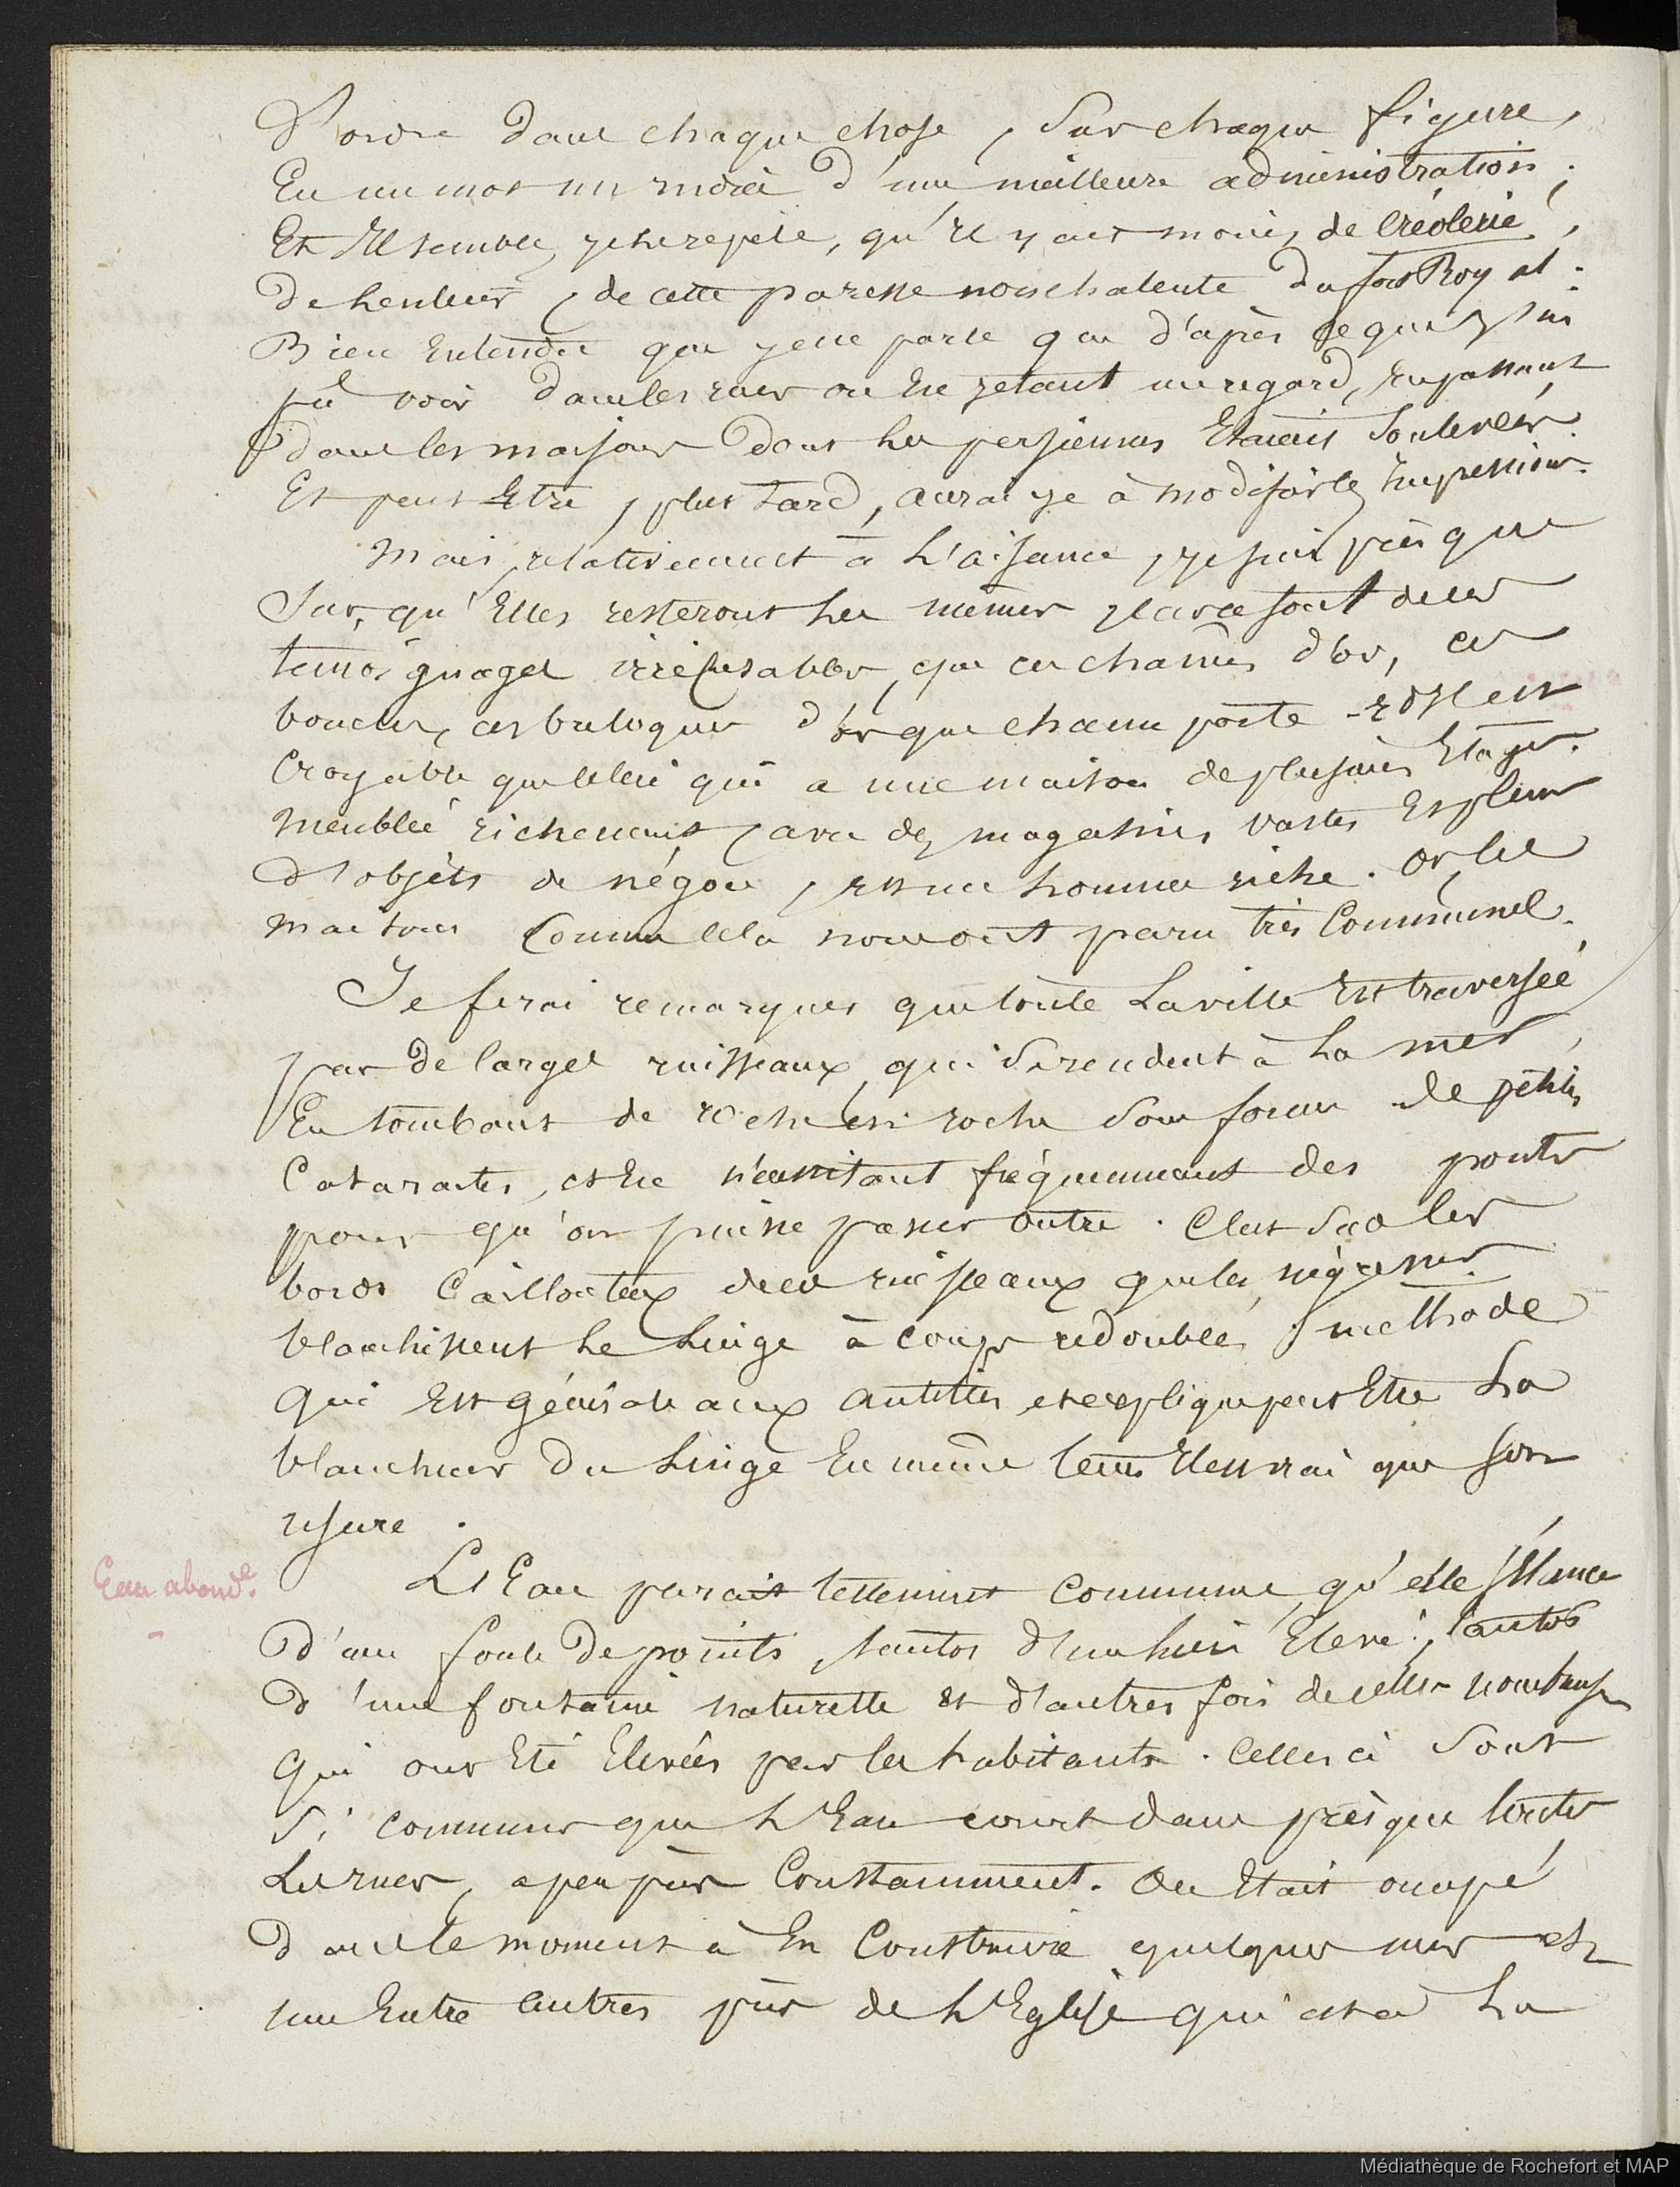 D'ordre dans chaque chose, sur chaque figure,
En un mot un indice d'une meilleure administration;
Et Il semble, je le répète, qu'Il y ait moins de Créolerie,
De lenteur, de cette paresse nonchalente du fort Royal.
Bien Entendu que je ne parle que d'après ce que j'ai
pû voir dans les rues ou En jetant un regard, En passant
dans les maisons dont les persiennes Etaient soulevées.
Et peut Etre, plus tard, aurai je à modifier les Impressions.
Mais, relativement à L'aisance, je suis près que
Sur, qu'Elles resteront les mêmes, car ce sont de ces
temoignages irrécusables, que ces chaines d'or, ces
boucles, ces breloques d'or que chacun porte - Il est
Croyable que celui qui a une maison de plusieurs Etages.
Meublée richement, avec des magasins vastes Et pleins
d'objets de négoce, est un homme riche. Or, les
maisons Comme cela nous ont paru très Communes.
Je ferai remarquer que toute La ville Est traversée
par de larges ruisseaux, qui se rendent à La mer,
En tombant de roche en roche sous forme de petites
Cataractes, et En nécessitant fréquemment des ponts
pour qu'on puisse passer outre. C'est sur les
bords Caillouteux de ces ruisseaux que les négresses
blanchissent Le Linge à coups redoublés, méthode
Qui Est générale aux antilles, et explique peut Etre La
blancheur du Linge En même tems Il est vrai que son
usure.
Eau abond.e
L'Eau parait tellement commune, qu'elle s'Elance
d'une foule de points, tantot d'un lieu Elevé, tantot
d'une fontaine naturelle et d'autres fois de celles nombreuses
Qui ont Eté Elevées par les habitants. Celles ci sont
Si communes que L'Eau court dans près que toutes
Les rues, a peu près Constamment. On Etait occupé
dans le moment à En Construire quelques unes et
une Entre autres près de L'Eglise qui est à La
Médiathèque de Rochefort et MAP